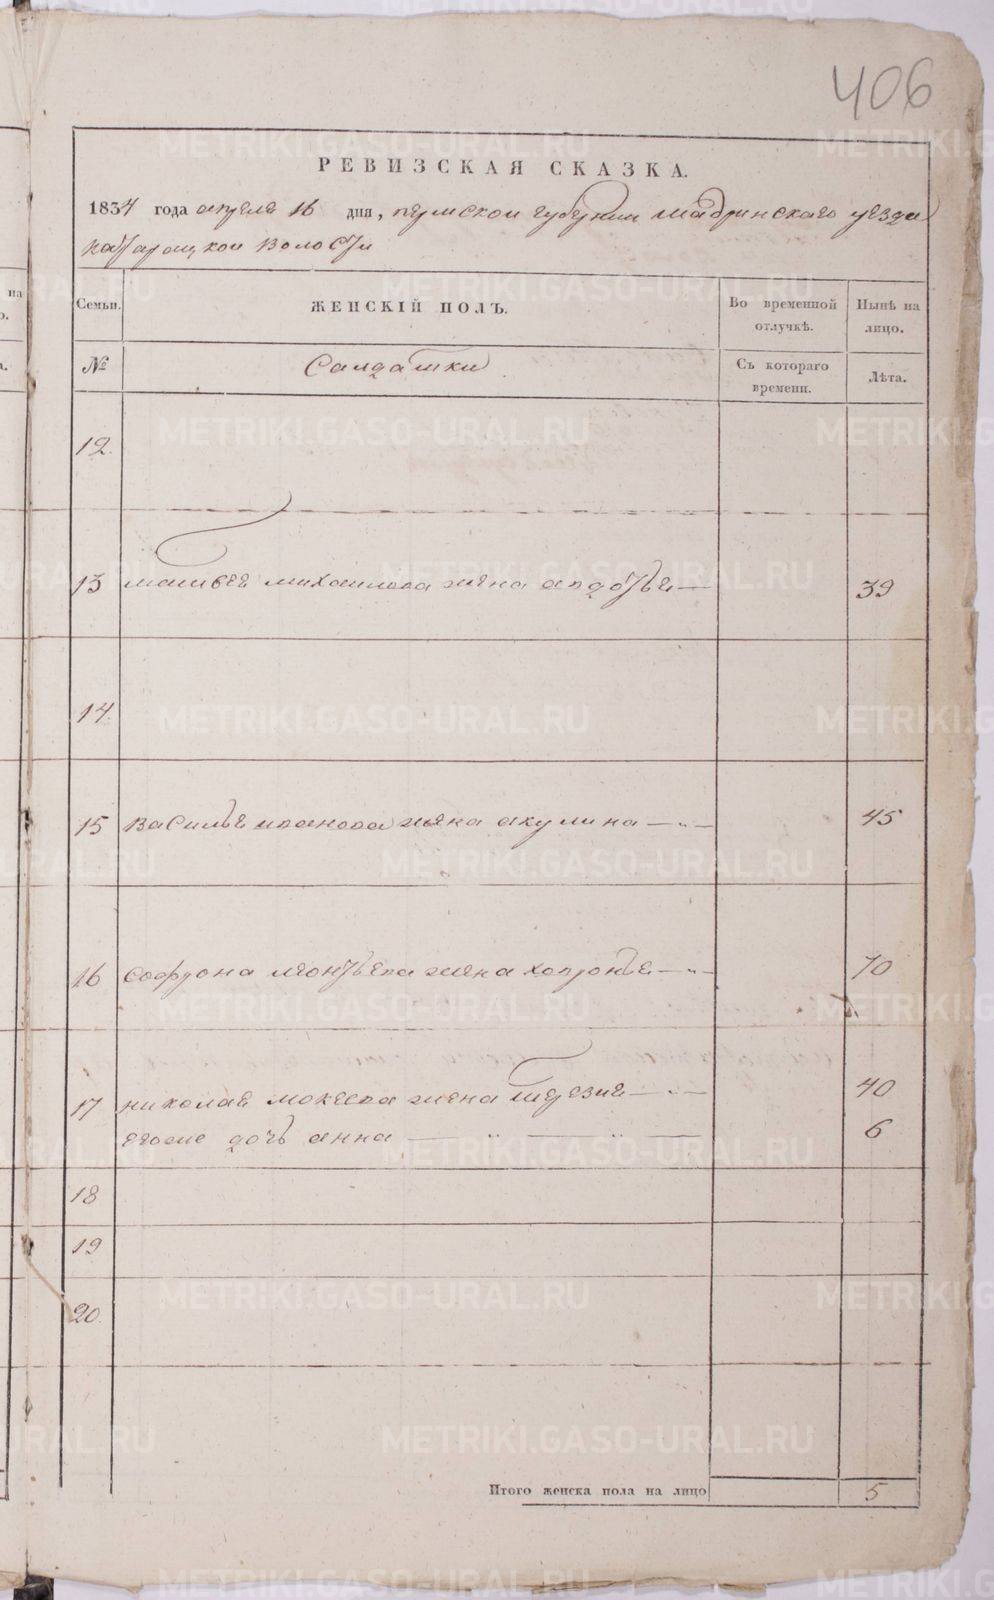 406
РЕВИЗСКАЯ СКАЗКА.
1834 года апреля 16 дня, пермской губернии шадринскаго уезда
катарацкой волости
Семьи. ЖЕНСКІЙ ПОЛЪ. Во временной отлучкѣ. Нынѣ на лицо.
№ Салдатки Съ котораго времени. Лѣта.
12.
13 матвея михаилова жена авдотья 39
14.
15 василья иванова жена акулина 45
16 софрона леонтьева жена хавронья 70
17 николая мокеева жена 40
егоже дочь анна 6
18
19
20.
Итого женска пола на лицо 5
METRIKI.GASO-URAL.RU